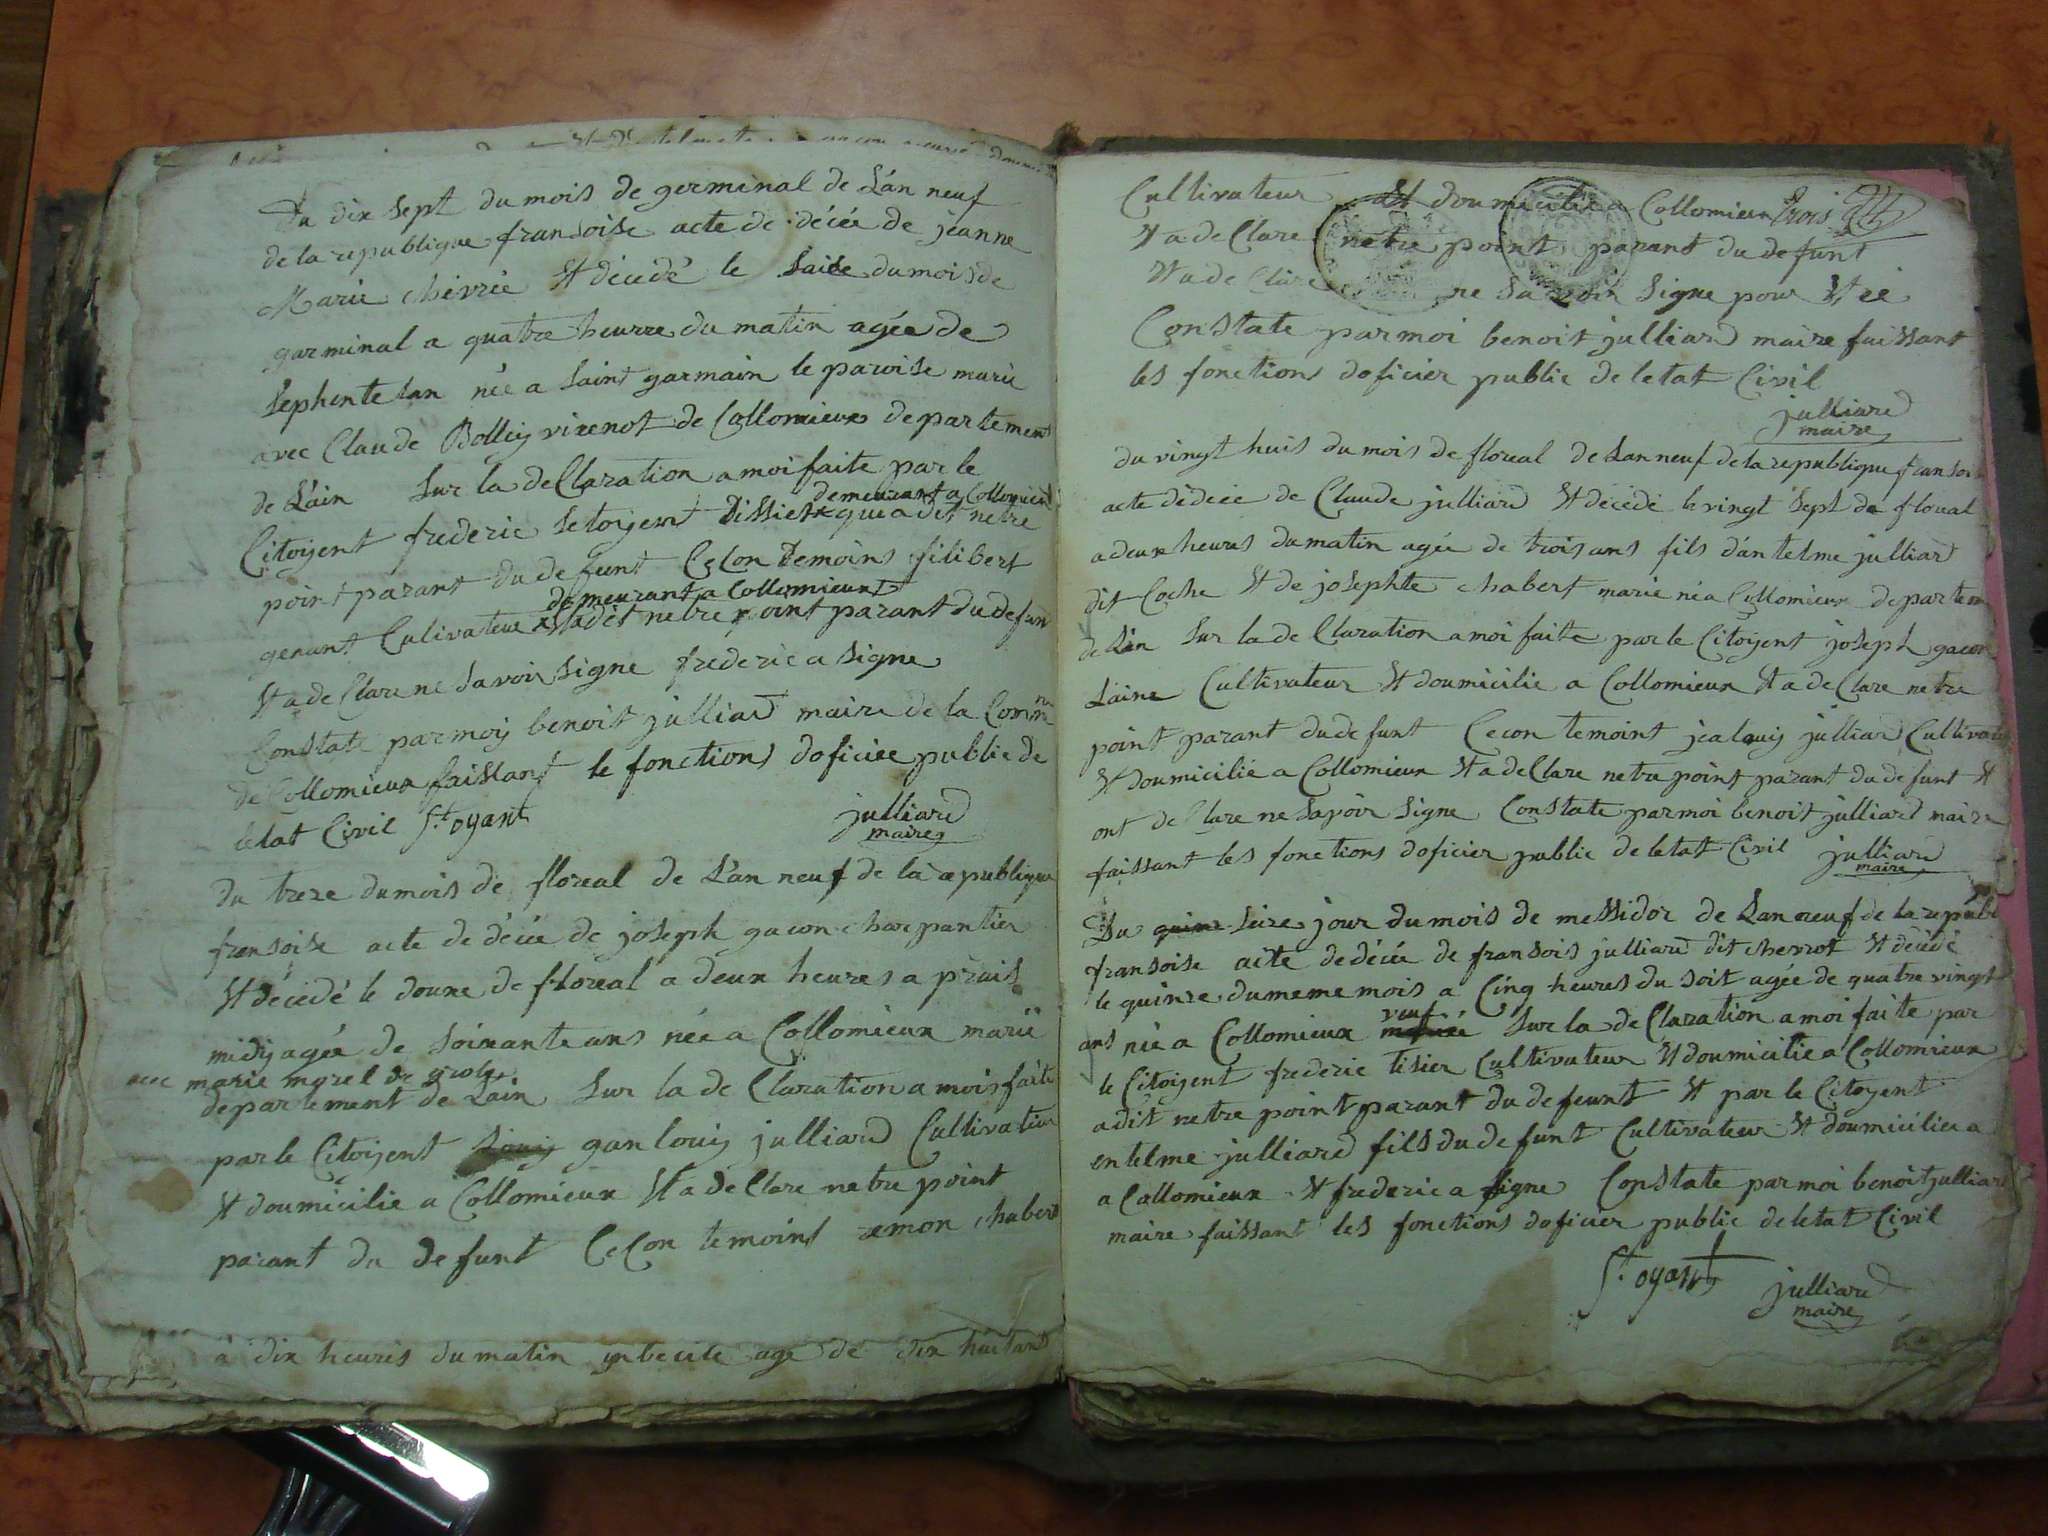 Du dix sept du mois de germinal de L'an neuf
de la republique fransoise acte de décée de jeanne
Marie chévrie Et décédé le saise du mois de
garminal a quatre heurre du matin agée de
sephente tan née a saint garmain le paroise marie
avec Claude Bolliy virenot de Collomieux departement
de L'ain sur la deClaration a moi faite par le
demeurant a Collomieu
Citoyent frederic setoyent tissier que a dit netre
point parant du defunt Cecon temoins filibert
demeurant a Collomieux
genant Culivateur Et a dit netre point parant du defun
Et a deClare ne savoir signe frederic a signe
Constate par moy benoit julliard maire de la Comm
de Collomieux faissant le fonctions doficiee public de
letat Civil St oyant julliard
maire
du treze du mois de floreal de L'an neuf de la republique
fransoise acte de décée de joseph gacon charpantier
Et décedé le douxe de floreal a deux heures a prais
midy agée de soixante ans née a Collomieux marié
avec marie morel de
departement de Lain sur la de Claration a mois faite
par le Citoyent Louis ganlouis julliard Cultivateur
Et doumicilie a Collomieux Et a deClare netre point
parant du defunt Cecon temoins emon chabert
à dix heures du matin ynbecile age de dix huitans
Cultivateur et doumicilié a Collomieux trois
Et a deClare netre point parant du defunt
Et a de Clare ne savoir signe pour Et ré
Constate par moi benoit julliard maire faissant
les fonctions doficier public de letat Civil
julliard
maire
du vingt huis du mois de floreal de Lan neuf de la republique fransoi
acte dédécée de Claude julliard Et décédé le vingt sept de floreal
a deux heures du matin agée de trois ans fils dantelme julliard
dit Coche Et de josephte chabert marie né a Collomieux departem
de Lain sur la de Claration a moi faite par le Citoyent joseph gacon
Laine Cultivateur Et doumicilie a Collomieux Et a de Clare netre
point parant du defunt Cecon temoint jealouis julliard Cultivateu
Et doumicilié a Collomieux Et a deClare netre point parant du defunt Et
ont de Clare ne savoir signe Constate par moi benoit julliard maire
faissant les fonctions doficier public de letat Civil julliard
maire
Du quinz seize jour du mois de messidor de Lan neuf de la republi
fransoise acte dedécée de fransois julliard dit chevrot Et décédé
le quinze du meme mois a Cinq heures du soit agée de quatre vingt
veuf
ans née a Collomieux mariée sur la de Claration a moi faite par
le Citoyent frederic tisier Cultivateur Et doumicilie a Collomieux
a dit netre point parant du defeunt Et par le Citoyent
entelme julliard fils du defunt Cultivateur Et doumicilier a
a Collomieux Et frederic a signe Constate par moi benoit julliard
maire faissant les fonctions doficier public de letat Civil
St oyant julliard
maire